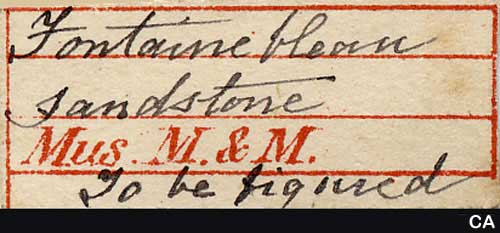 Fontainebleau
sandstone
Mus. M. & M.
To be figured
CA